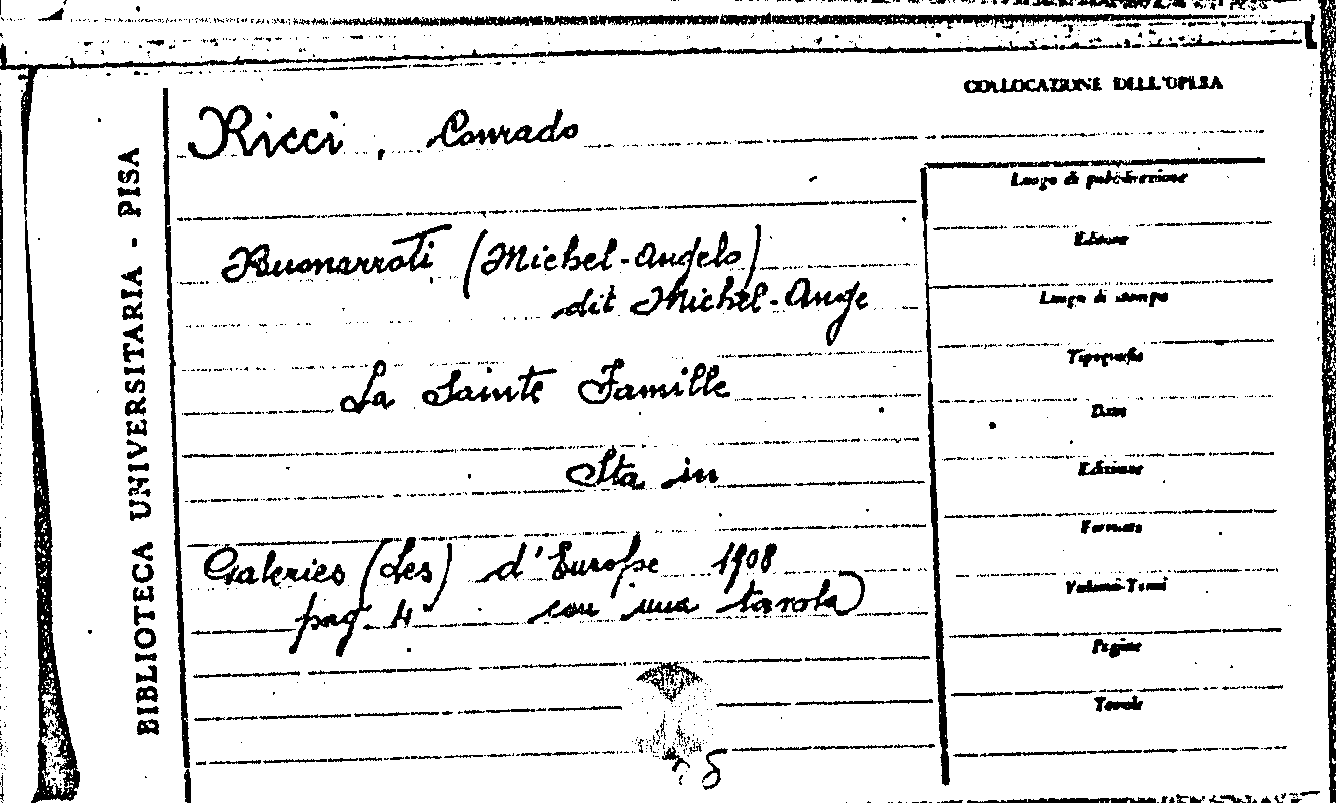 COLLOCAZIONE DELL'OPERA
Ricci, Corrado
BIBLIOTECA UNIVERSITARIA - PISA
Buonarroti (Michel-Angelo)
dit Michel-Ange
La Sainte Famille
Sta in
Galeries (Les) d'Europe 1908
pag. 4 con una tavola)
Luogo di pubblicazione
Editore
Luogo di stampa
Tipografia
Data
Edizione
Formato
Volumi-Tomi
Pagine
Tavole